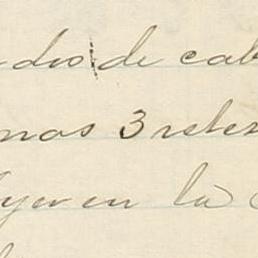 dio de cab
mos 3 retes
yer en la